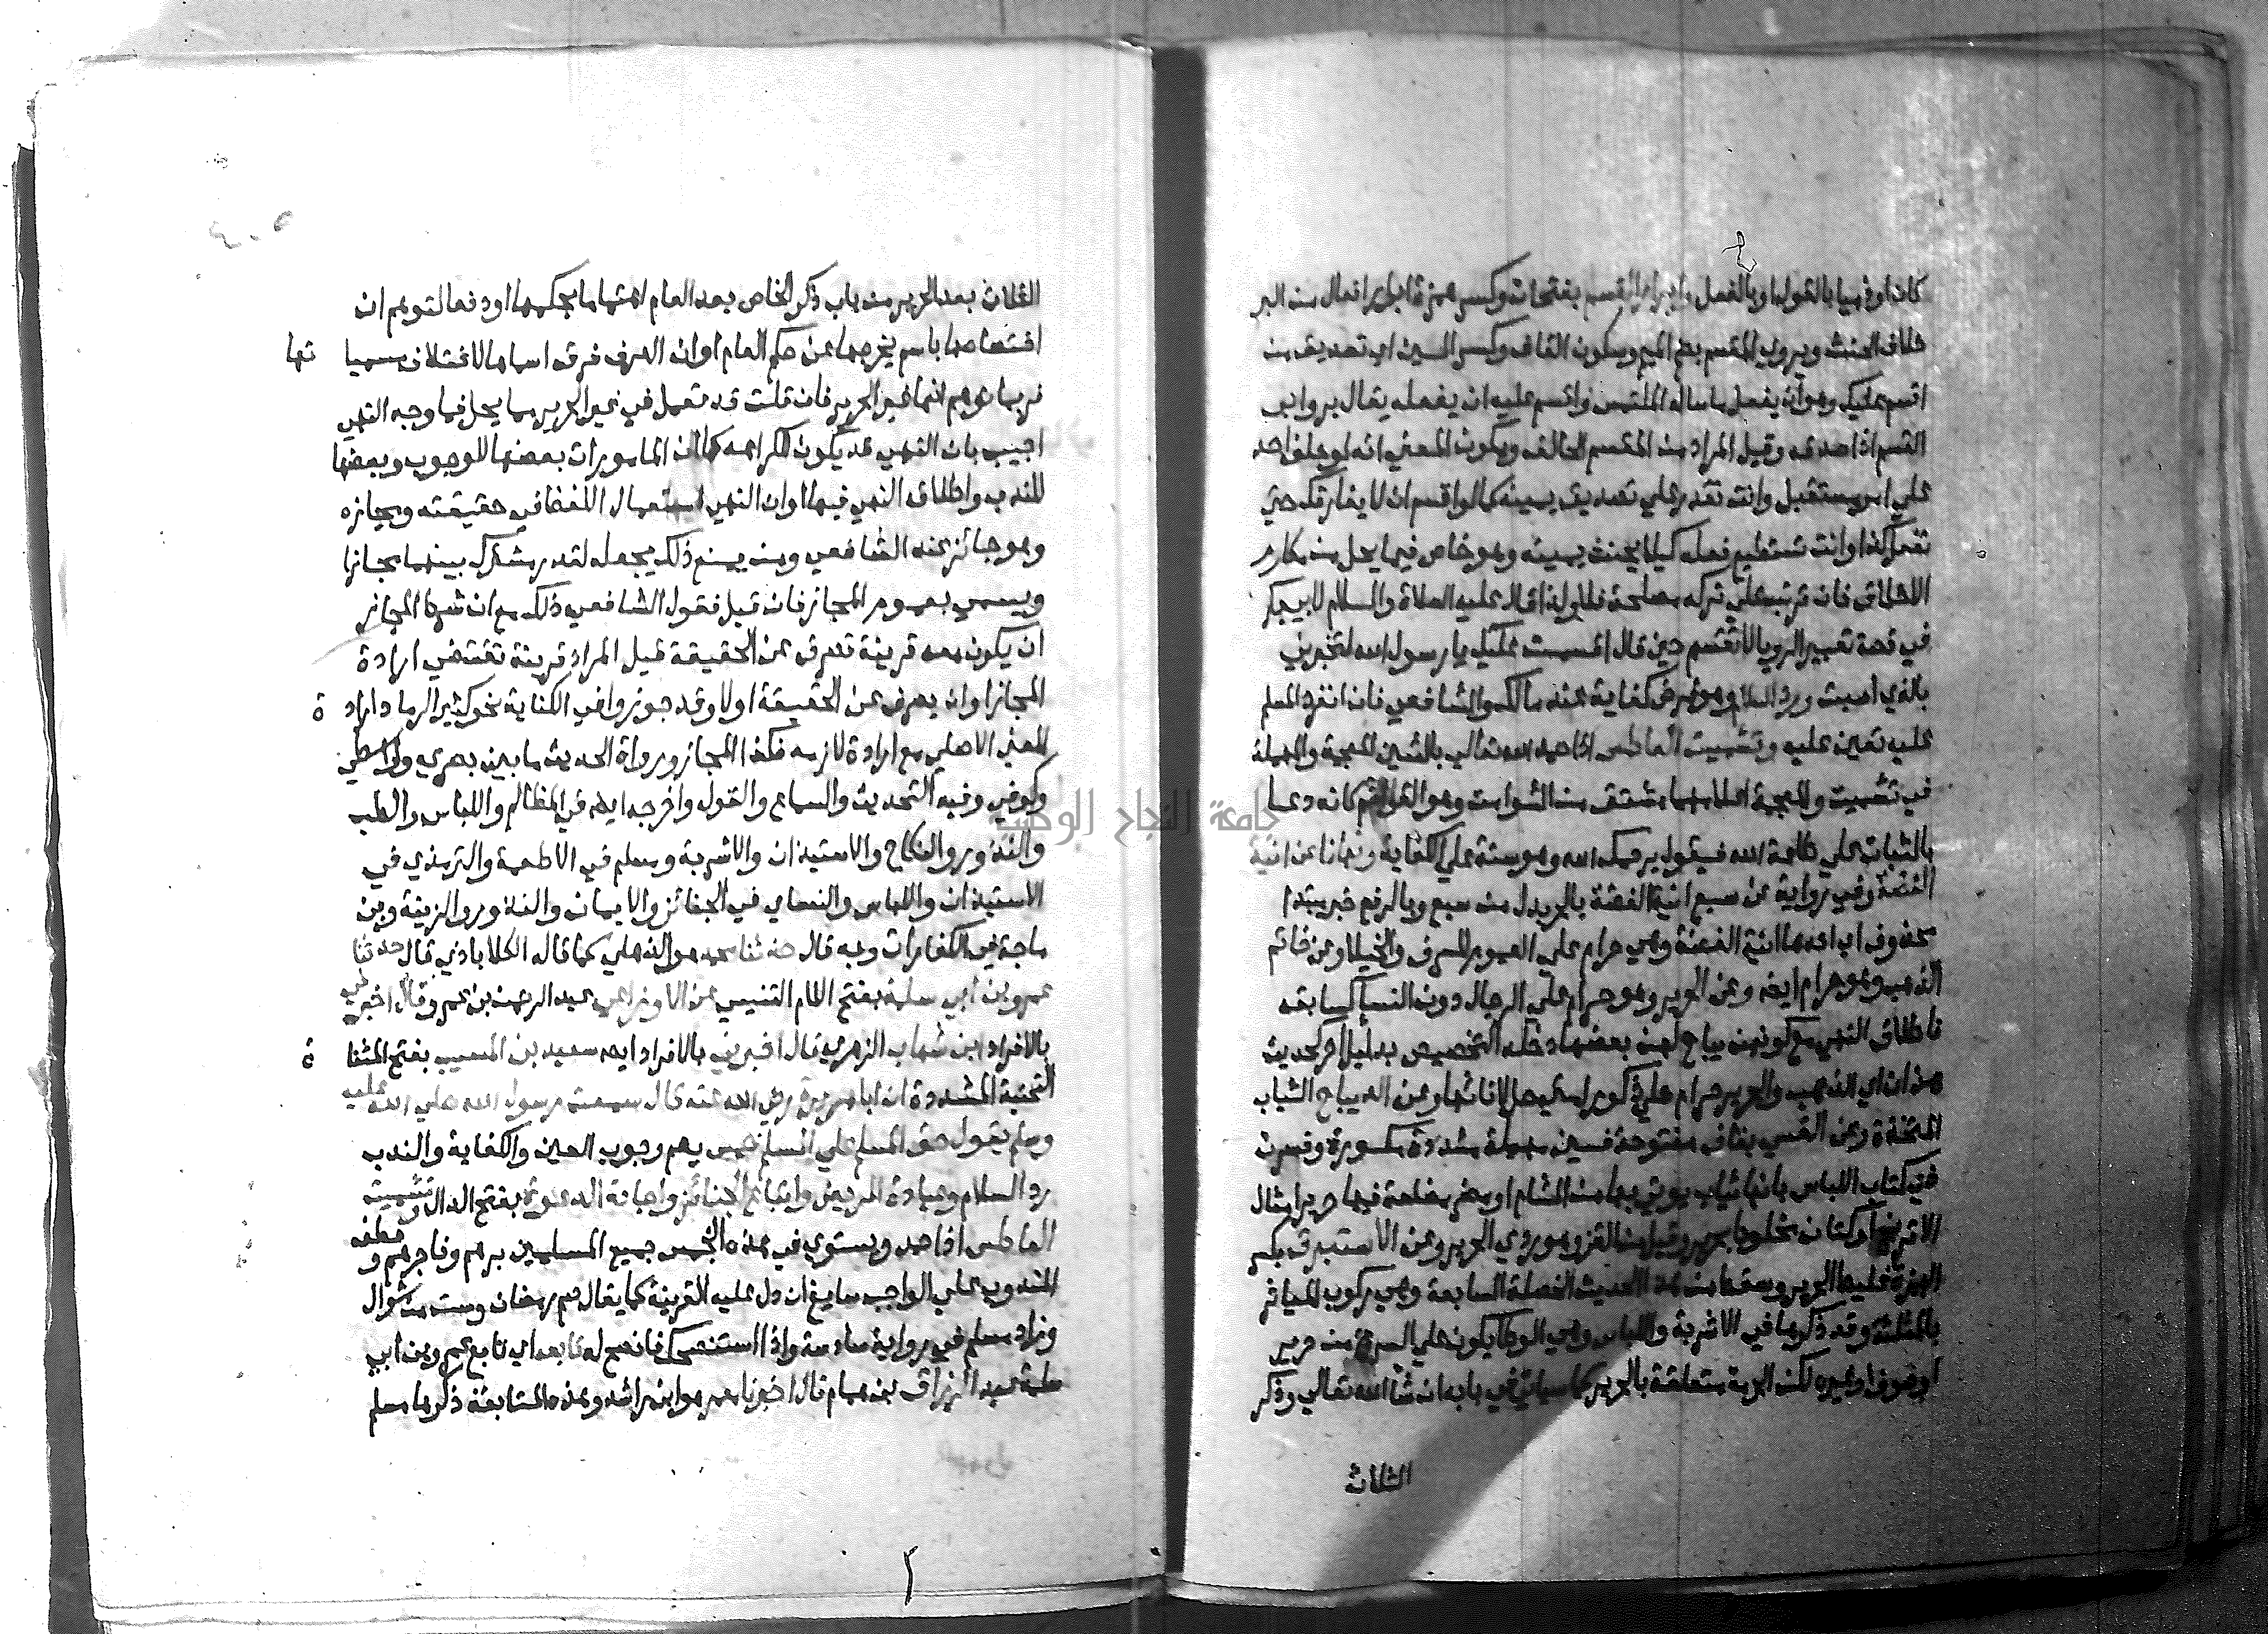 كان اوذميا بالقول او بالفعل وابرار القسم بفتحات وكسر همزة ابرار افعال من البر
خلاف الحنث ويروي المقسم بضم الميم وسكون القاف وكسر السين اي تصديق من
اقسم عليك وهو ان يفعل ما ساله الملتمس واقسم عليه ان يفعله يقال بر وابر
القسم اذا صدقه وقيل المراد من المقسم الحالف ويكون المعني انه لو حلف احد
علي امر مستقبل وانت تقدر علي تصديق يمينه كما لو اقسم ان لا يفارقك حتي
تفعل كذا وانت تستطيع فعله كيلا يحنث يمينه وهو خاص فيما يحل من مكارم
الاخلاق فان ترتب علي تركه مصلحة فلا ولذا قال عليه الصلاة والسلام لابي بكر
في قصة تعبير الرويا لا تقسم حين قال اقسمت عليك يا رسول الله لتخبرني
بالذي اصبت ورد السلام وهو فرض كفاية عند مالك والشافعي فان انفرد المسلم
عليه تعين عليه وتشميت العاطس اذا حمد الله تعالي بالشين المعجمة والمهملة
في تشميت والمعجمة اعلاهما مشتق من الشوامت وهو القوائم كانه دعا
بالثبات علي طاعة الله فيقول يرحمك الله وهو سنة علي الكفاية ونهانا عن انية
الفضة وفي رواية عن سبع انية الفضة بالجر بدل من سبع وبالرفع خبر مبتدا
محذوف اي احدها انية الفضة وهي حرام علي العموم للسرف والخيلا وعن خاتم
الذهب وهو حرام ايضا وعن الحرير وهو حرام علي الرجال دون النسا كسابقه
فاطلاق النهي مع كونهن يباح لهن بعضها دخله التخصيص بدليل اخر كحديث
هذان اي الذهب والحرير حرام علي ذكور امتي حل لاناثها وعن الديباج الثياب
المتخذة وعن القسي بقاف مفتوحة فسين مهملة مشددة مكسورة وفسرت
في كتاب اللباس بانها ثياب يوتي بها من الشام او مصر مضلعة فيها حرير امثال
الاترنج او كتان مخلوط بحرير وقيل من القز وهو ردي الحرير وعن الاستبرق بكسر
الهمزة غليظ الحرير وسقط من هذا الحديث الخصلة السابعة وهي ركوب المياثر
بالمثلثة وقد ذكرها في الاشربة واللباس وهي الوطا يكون علي السرج من حرير
او صوف او غيره لكن الحرمة متعلقة بالحرير كما سياتي في بابه ان شا الله تعالي وذكر
الثلاث
الثلاث بعد الحرير من باب ذكر الخاص بعد العام اهتماما بحكمها او دفعا لتوهم ان
اختصاصها باسم يخرجها عن حكم العام او ان العرف فرق اسماها لاختلاف مسميا تها
فربما توهم انها غير الحرير فان قلت قد تعمل في غير الحرير مما يحل فما وجه النهي
اجيب بان النهي قد يكون للكراهه كما ان المامورات بعضها للوجوب وبعضها
للندب واطلاق النهي فيها اوان النهي استعمال اللفظ في حقيقته ومجازه
وهو جائز عند الشافعي ومن يمنع ذلك يجعله لقدر مشترك بينهما مجازا
ويسمي بعموم المجاز فان قيل فقول الشافعي ذلك مع ان شرط المجاز
ان يكون معه قرينة تصرف عن الحقيقة قيل المراد قرينة تقتضي ارادة
المجاز او ان يصرف عن الحقيقة اولا وقد جوزوا في الكناية نحو كثير الرماد اراد ة
المعني الاصلي مع ارادة لازمه فكذا المجاز ورواة الحديث ما بين بصري وواسطي
وكوفي وفيه التحديث والسماع والقول واخرجه ايضا في المظالم واللباس والطب
والنذور والنكاح والاستيذان والاشربة ومسلم في الاطعمة والترمذي في
الاستيذان واللباس والنساي في الجنائز والايمان والنذور والزينة وبن
ماجة في الكفارات وبه قال حدثنا محمد هو الذهلي كما قاله الكلاباذي قال حدثنا
عمرو بن ابي سلمة بفتح اللام التنيسي عن الاوزاعي عبد الرحمن بن عمرو قال اخبرني
بالافراد ابن شهاب الزهري قال اخبرني بالافراد ايضا سعيد بن المسيب بفتح المثنا ة
التحتية المشددة ان ابا هريرة رضي الله عنه قال سمعت رسول الله صلي الله عليه
وسلم يقول حق المسلم علي المسلم خمس يعم وجوب العين والكفاية والندب
رد السلام وعيادة المريض واتباع الجنائز واجابة الدعوة بفتح الدال وتشميت
العاطس اذا حمد ويستوي في هذه الخمس جميع المسلمين برهم وفاجرهم وعطف
المندوب علي الواجب سايغ ان دل عليه القرينة كما يقال صم رمضان وست من شوال
وزاد مسلم في رواية سادسة واذا استنصحك فانصح له تابعه اي تابع عمرو بن ابي
سلمة عبد الرزاق بن همام قال اخبرنا معمر هو ابن راشد وهذه المتابعة ذكرها مسلم
جامعة النجاح الوطنية